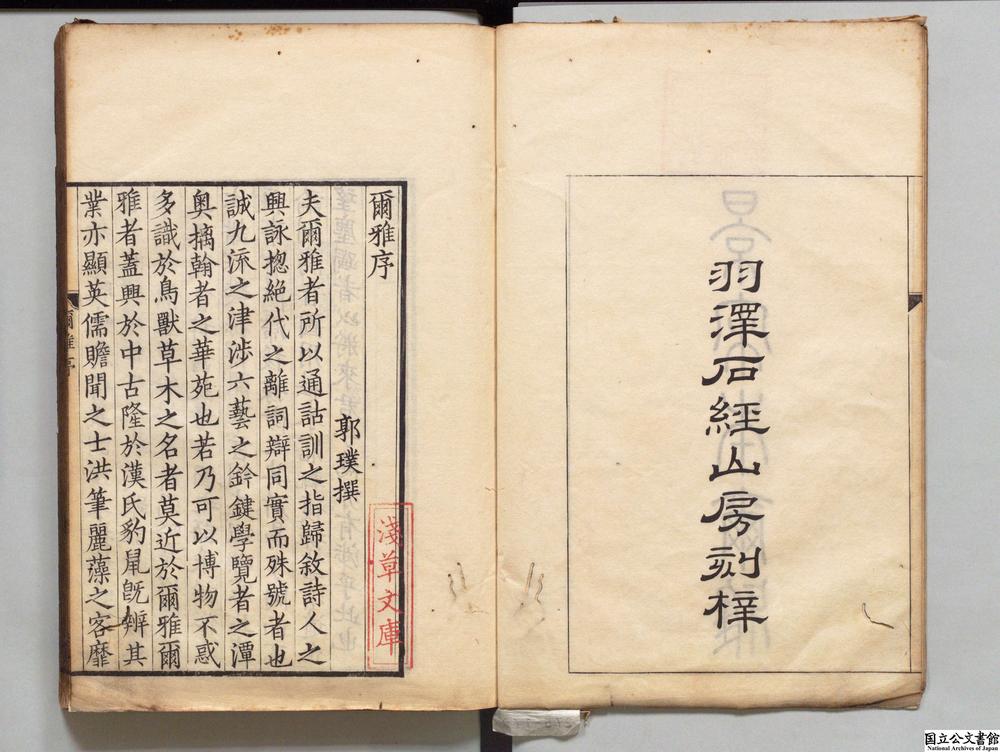 羽澤石經山房刻梓
爾雅序
郭璞撰
夫爾雅者所以通詁訓之指歸敘詩人之
興詠揔絶代之離詞辯同實而殊號者也
誠九流之津涉六藝之鈐鍵學覽者之潭
奥摛翰者之華苑也若乃可以博物不惑
多識於鳥獸草木之名者莫近於爾雅爾
雅者蓋興於中古隆於漢氏豹鼠旣辨其
業亦顯英儒贍聞之士洪筆麗藻之客靡
爾雅序
淺草文庫
国立公文書館
National Archives of Japan